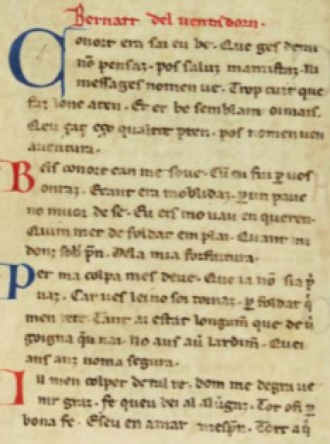 Bernart del uentadorn.
Conort era sai eu be. Que ges de mi
nō pensaz. pos saluz ni amistaz. Ni
messages nomen ue. Trop cuit que
faz lonc aten. Et er be semblanz oimais.
Qeu caz ego qualtre pren. pos nomen uen
auentura.
Bels conort can me soue. Cū eu fui p uos
onraz. Ecant era moblidaz. p un pauc
no muor de se. Qu eis mo uau en queren.
Quim met de foldat em plai. Quant mi
donz sobrpn. De la mia forfaitura.
Per ma colpa mes deue. Que ia nō sia p
uaz. Car ues lei no soi tornaz. p foldat q̄
men rete. Tant ai estat longam̄ que de
goigna qu nai. No aus aū lardim̄. Quei
an sanz noma segura.
Il men colpet de tal re. dom me degra ue
nir graz. fe queu dei al
bona fe. E seu en amar mespn. Tort aū